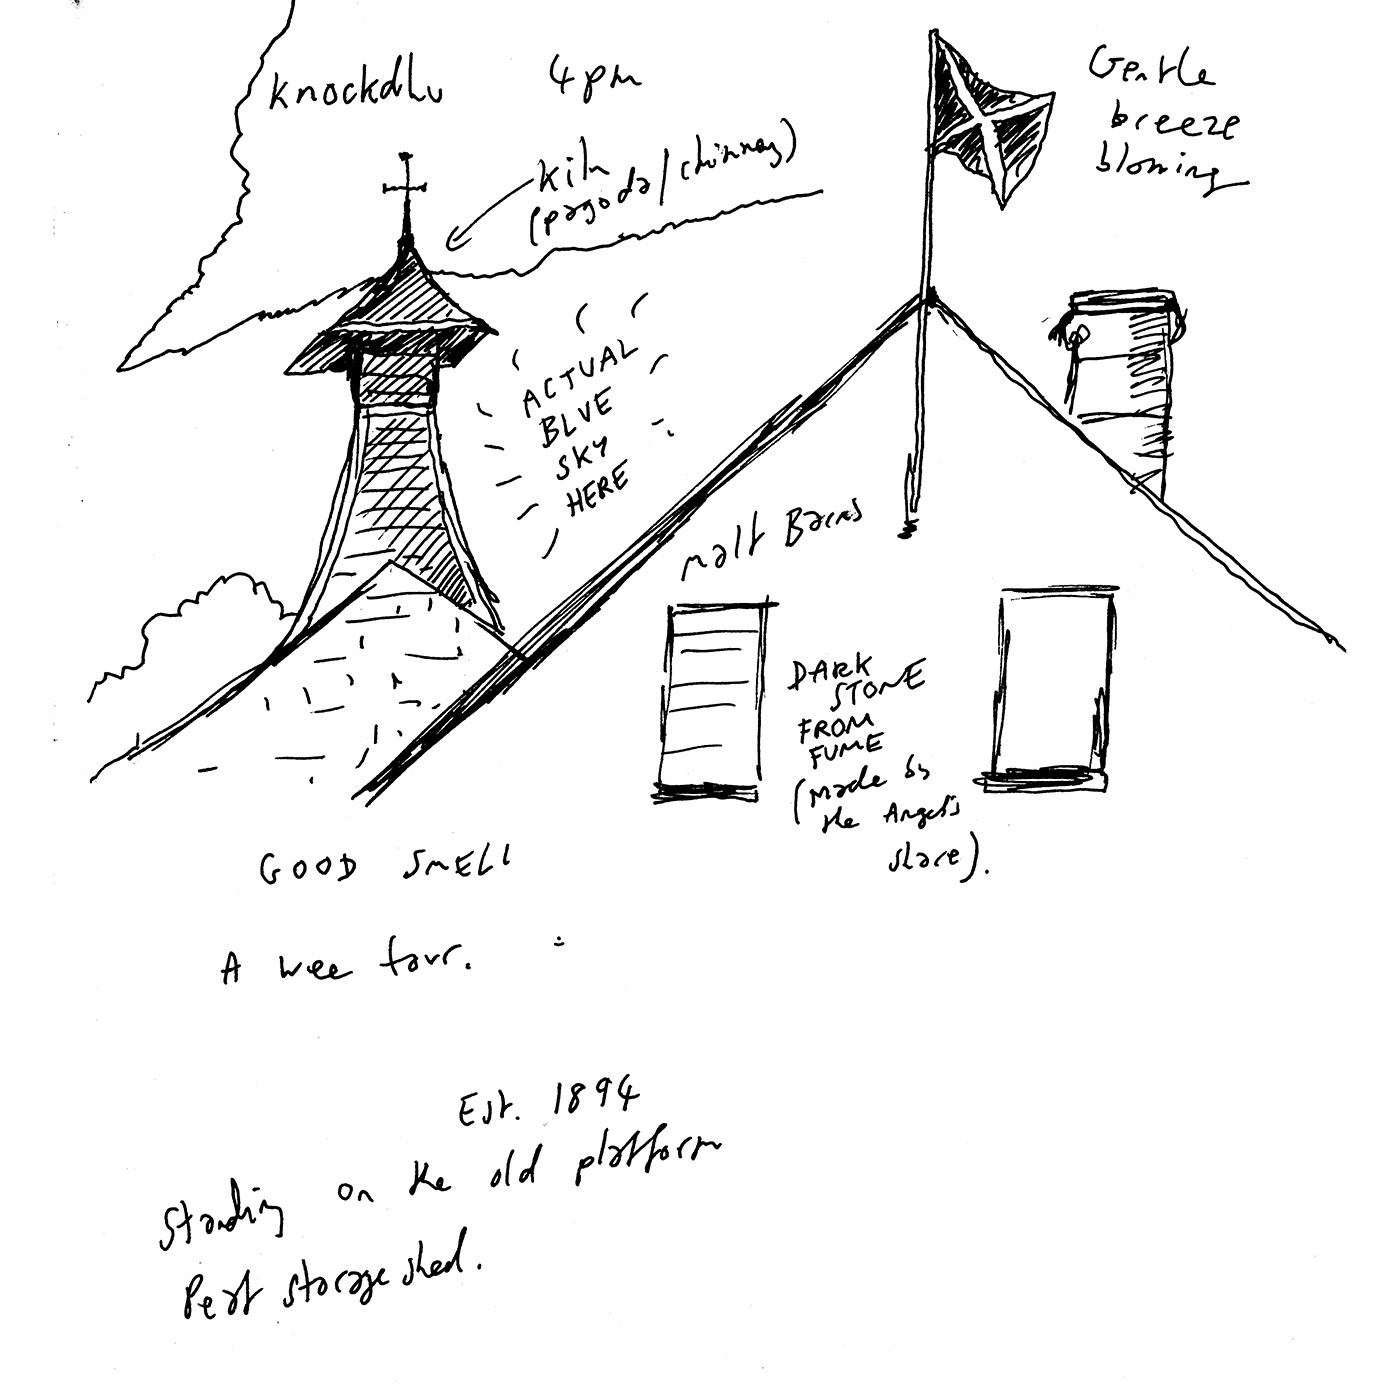 Knockdhu 4pm
Gentle
breeze
blowing
Kiln
(pagoda/chimney)
ACTUAL
BLUE
SKY
HERE
Malt Barns
DARK
STONE
FROM
FUME
(made by
the Angel's
share).
GOOD SMELL
A wee tour.
Est. 1894
Standing on the old platform
Peat storage shed.